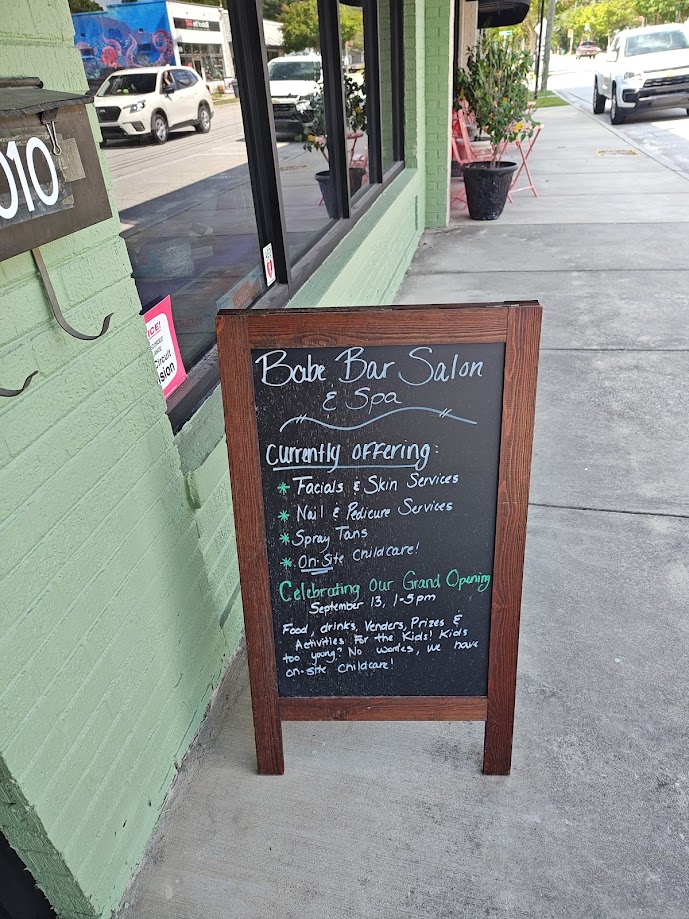 010
ICE!
Circuit
ision
Babe Bar Salon
& Spa
Currently offering:
* Facials & Skin Services
* Nail & Pedicure Services
* Spray Tans
* On-Site Childcare!
Celebrating Our Grand Opening
September 13, 1-5pm
Food, drinks, Venders, Prizes &
Activities For the Kids! Kids
too young? No worries, we have
on-site childcare!